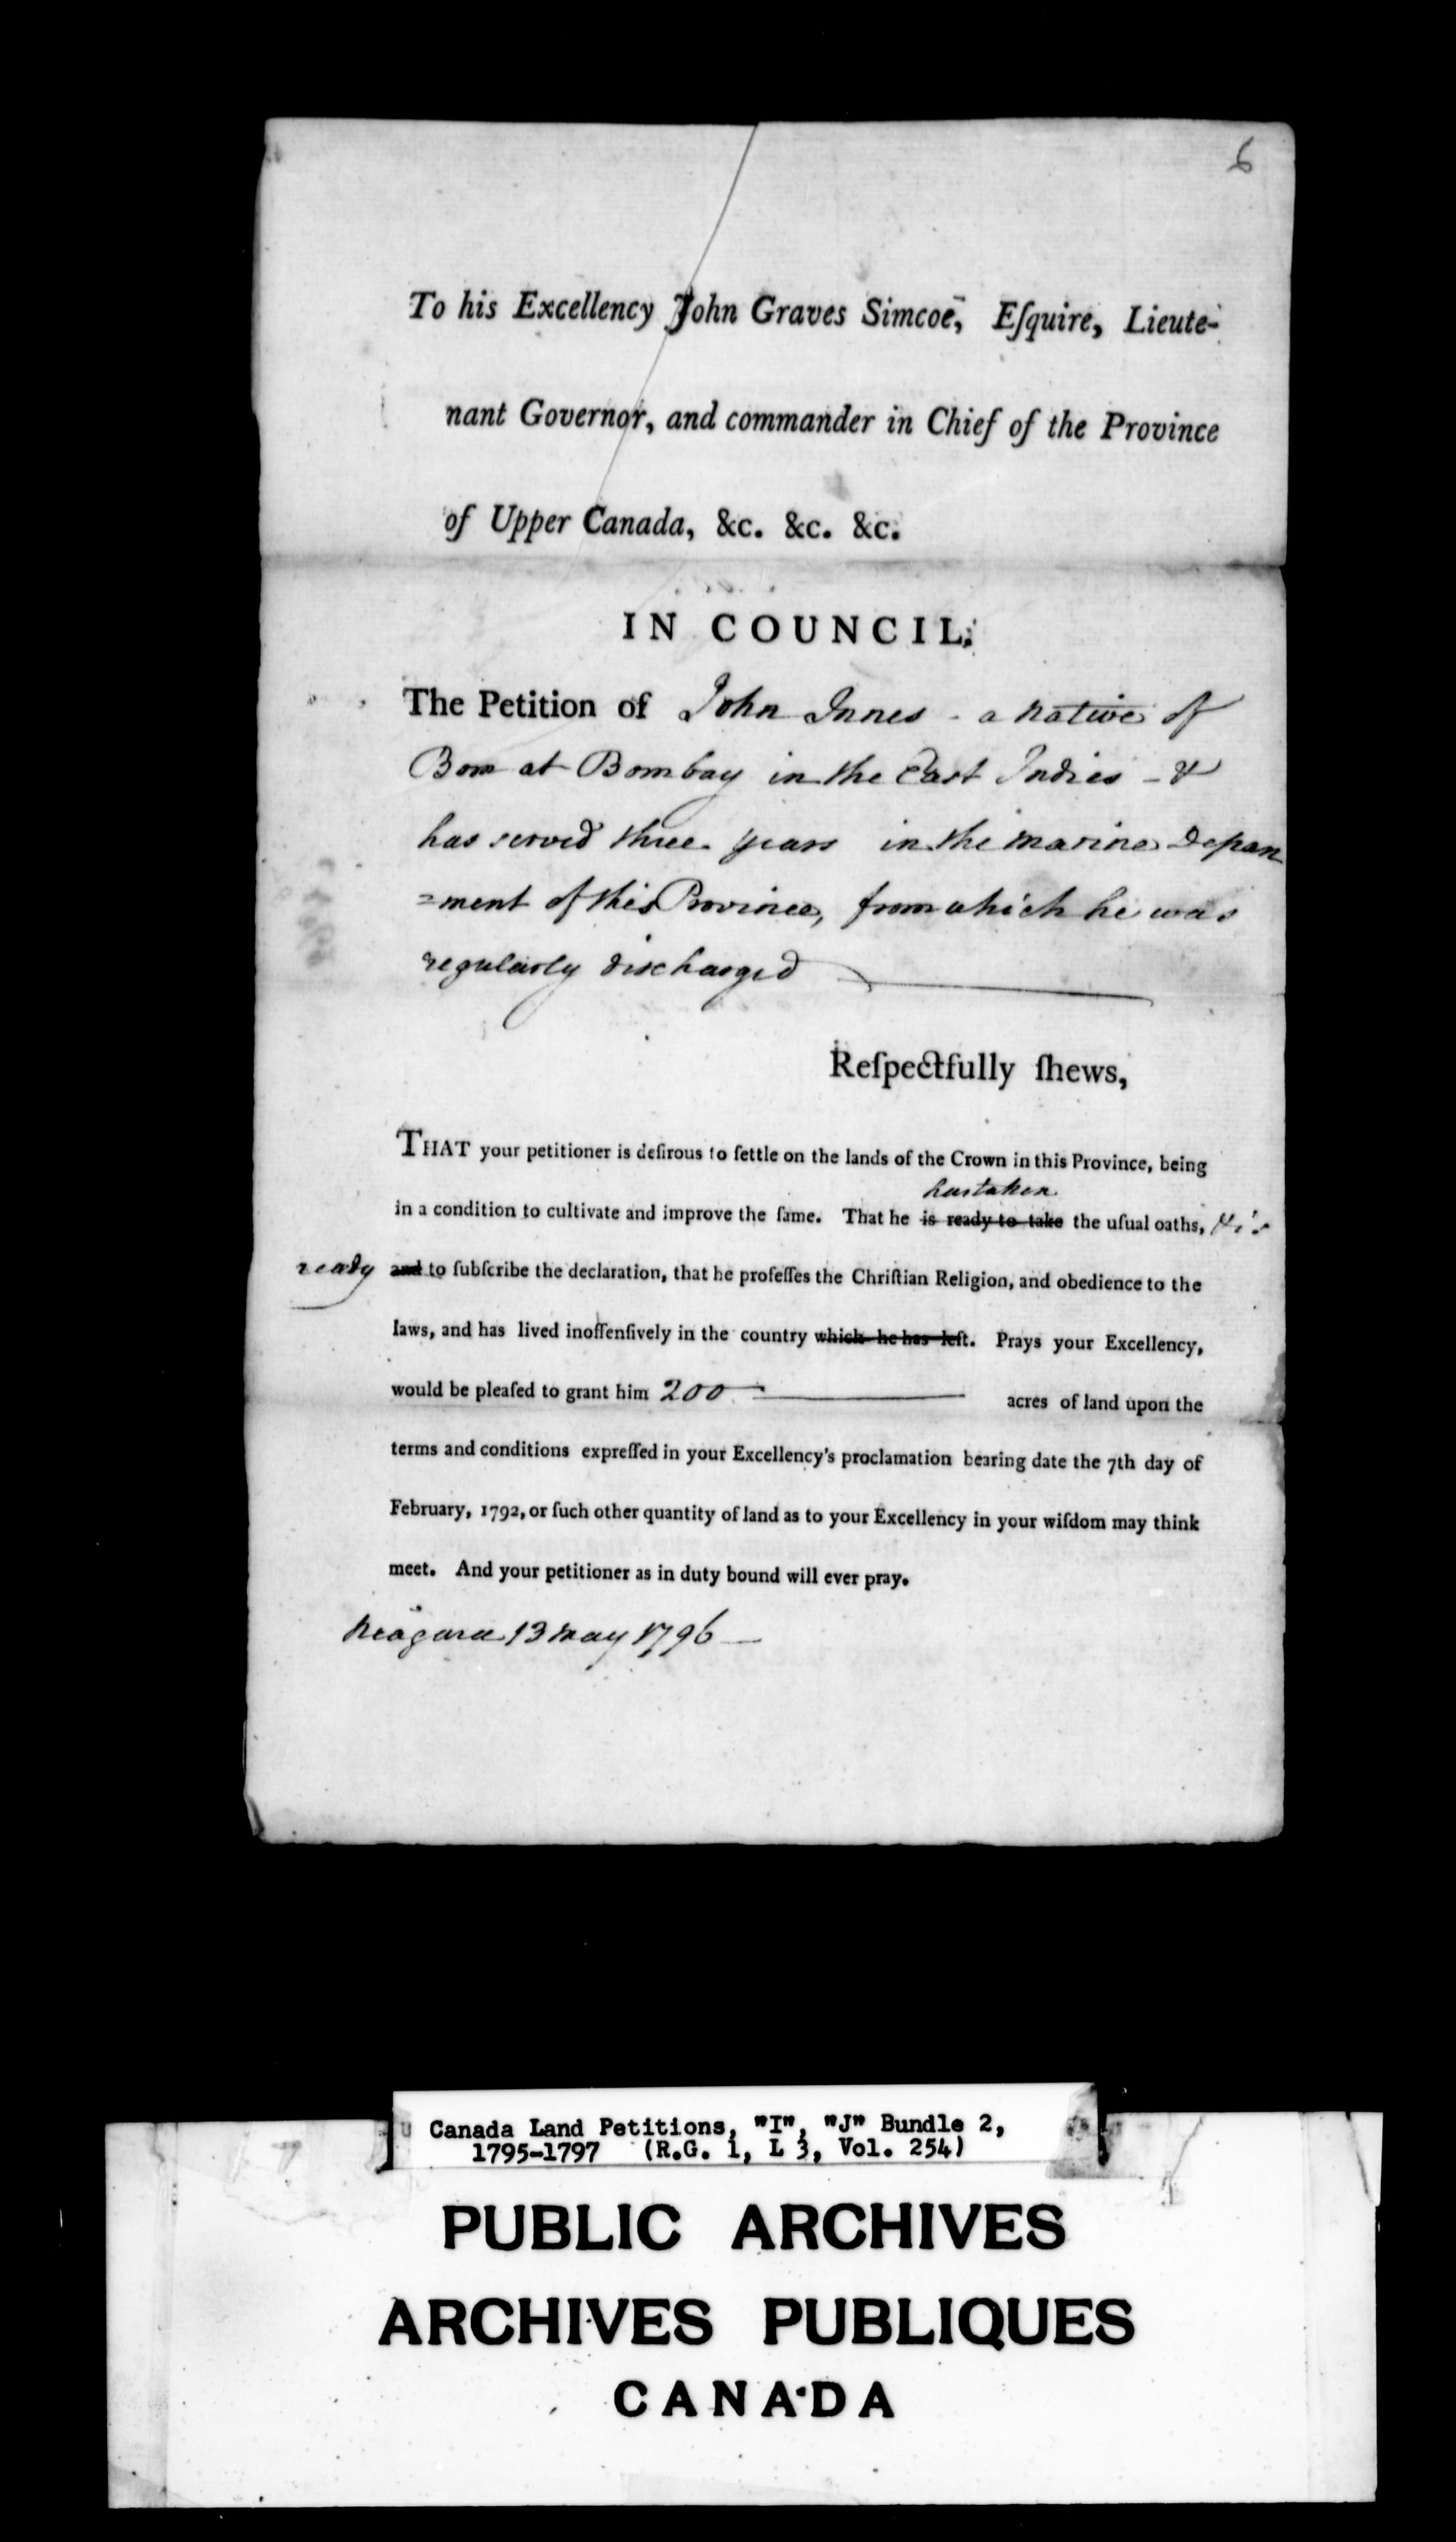 6
To his Excellency John Graves Simcoe, Eſquire, Lieute-
nant Governor, and commander in Chief of the Province
of Upper Canada, &c. &c. &c.
IN COUNCIL.
The Petition of John Innes - a native of
Born at Bombay in the East Indies - &
has served three years in the marine Depart
=ment of this Province, from which he was
regularly discharged
Reſpectfully ſhews,
THAT your petitioner is deſirous to ſettle on the lands of the Crown in this Province, being
has taken
in a condition to cultivate and improve the ſame. That he is ready to take the uſual oaths, & is
ready and to ſubſcribe the declaration, that he profeſſes the Chriſtian Religion, and obedience to the
laws, and has lived inoffenſively in the country which he has left. Prays your Excellency,
would be pleaſed to grant him 200 acres of land upon the
terms and conditions expreſſed in your Excellency's proclamation bearing date the 7th day of
February, 1792, or ſuch other quantity of land as to your Excellency in your wiſdom may think
meet. And your petitioner as in duty bound will ever pray.
Niagara 13 May 1796
Canada Land Petitions, "I", "J" Bundle 2,
1795-1797 (R.G. 1, L 3, Vol. 254)
PUBLIC ARCHIVES
ARCHIVES PUBLIQUES
CANADA